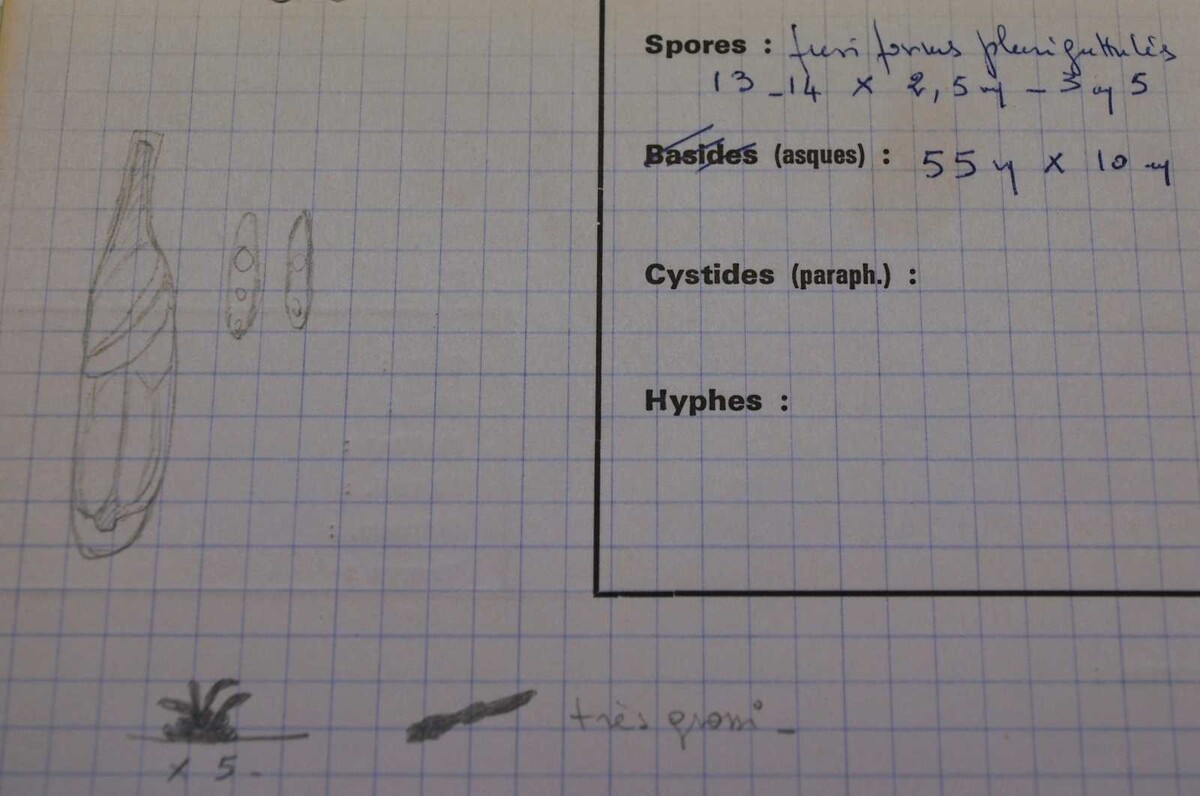 Spores : fusiformes pluriguttulés
13-14 x 2,5 µ - 3 µ 5
Basides (asques) : 55 µ x 10 µ
Cystides (paraph.) :
Hyphes :
très grossi -
x 5 -